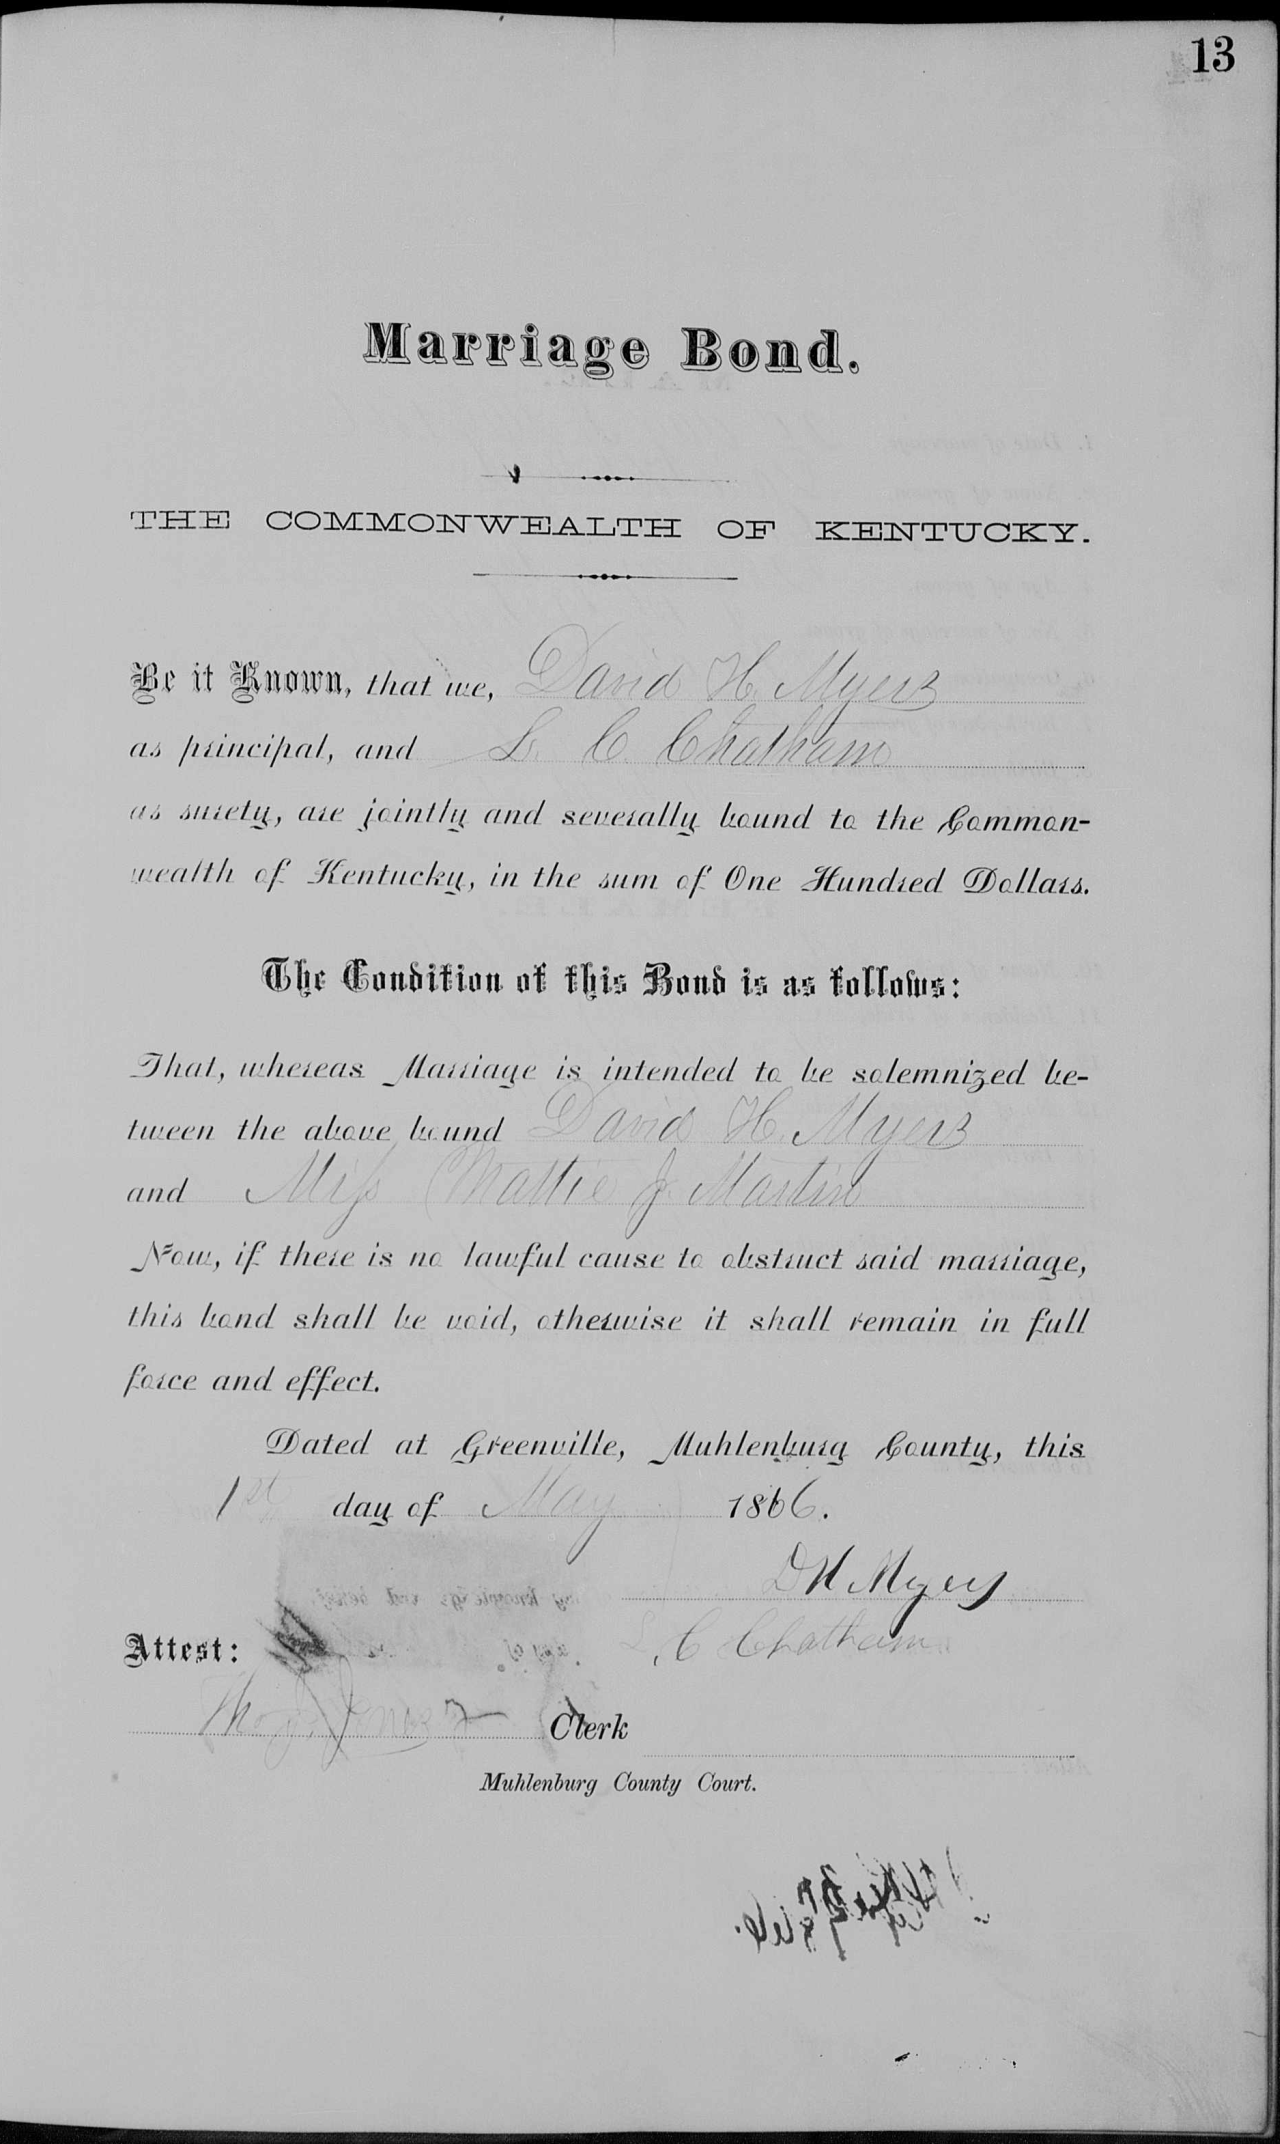 13
Marriage Bond.
THE COMMONWEALTH OF KENTUCKY.
Be it Known, that we, David H. Myers
as principal, and L. C. Chatham
as surety, are jointly and severally bound to the Common-
wealth of Kentucky, in the sum of One Hundred Dollars.
The Condition of this Bond is as follows:
That, whereas Marriage is intended to be solemnized be-
tween the above bound David H. Myers
and Miss Mattie J. Martin
Now, if there is no lawful cause to obstruct said marriage,
this bond shall be void, otherwise it shall remain in full
force and effect.
Dated at Greenville, Muhlenburg County, this
1st day of May 1866.
D H Myers
L C Chatham
Attest:
Jones Clerk
Muhlenburg County Court.